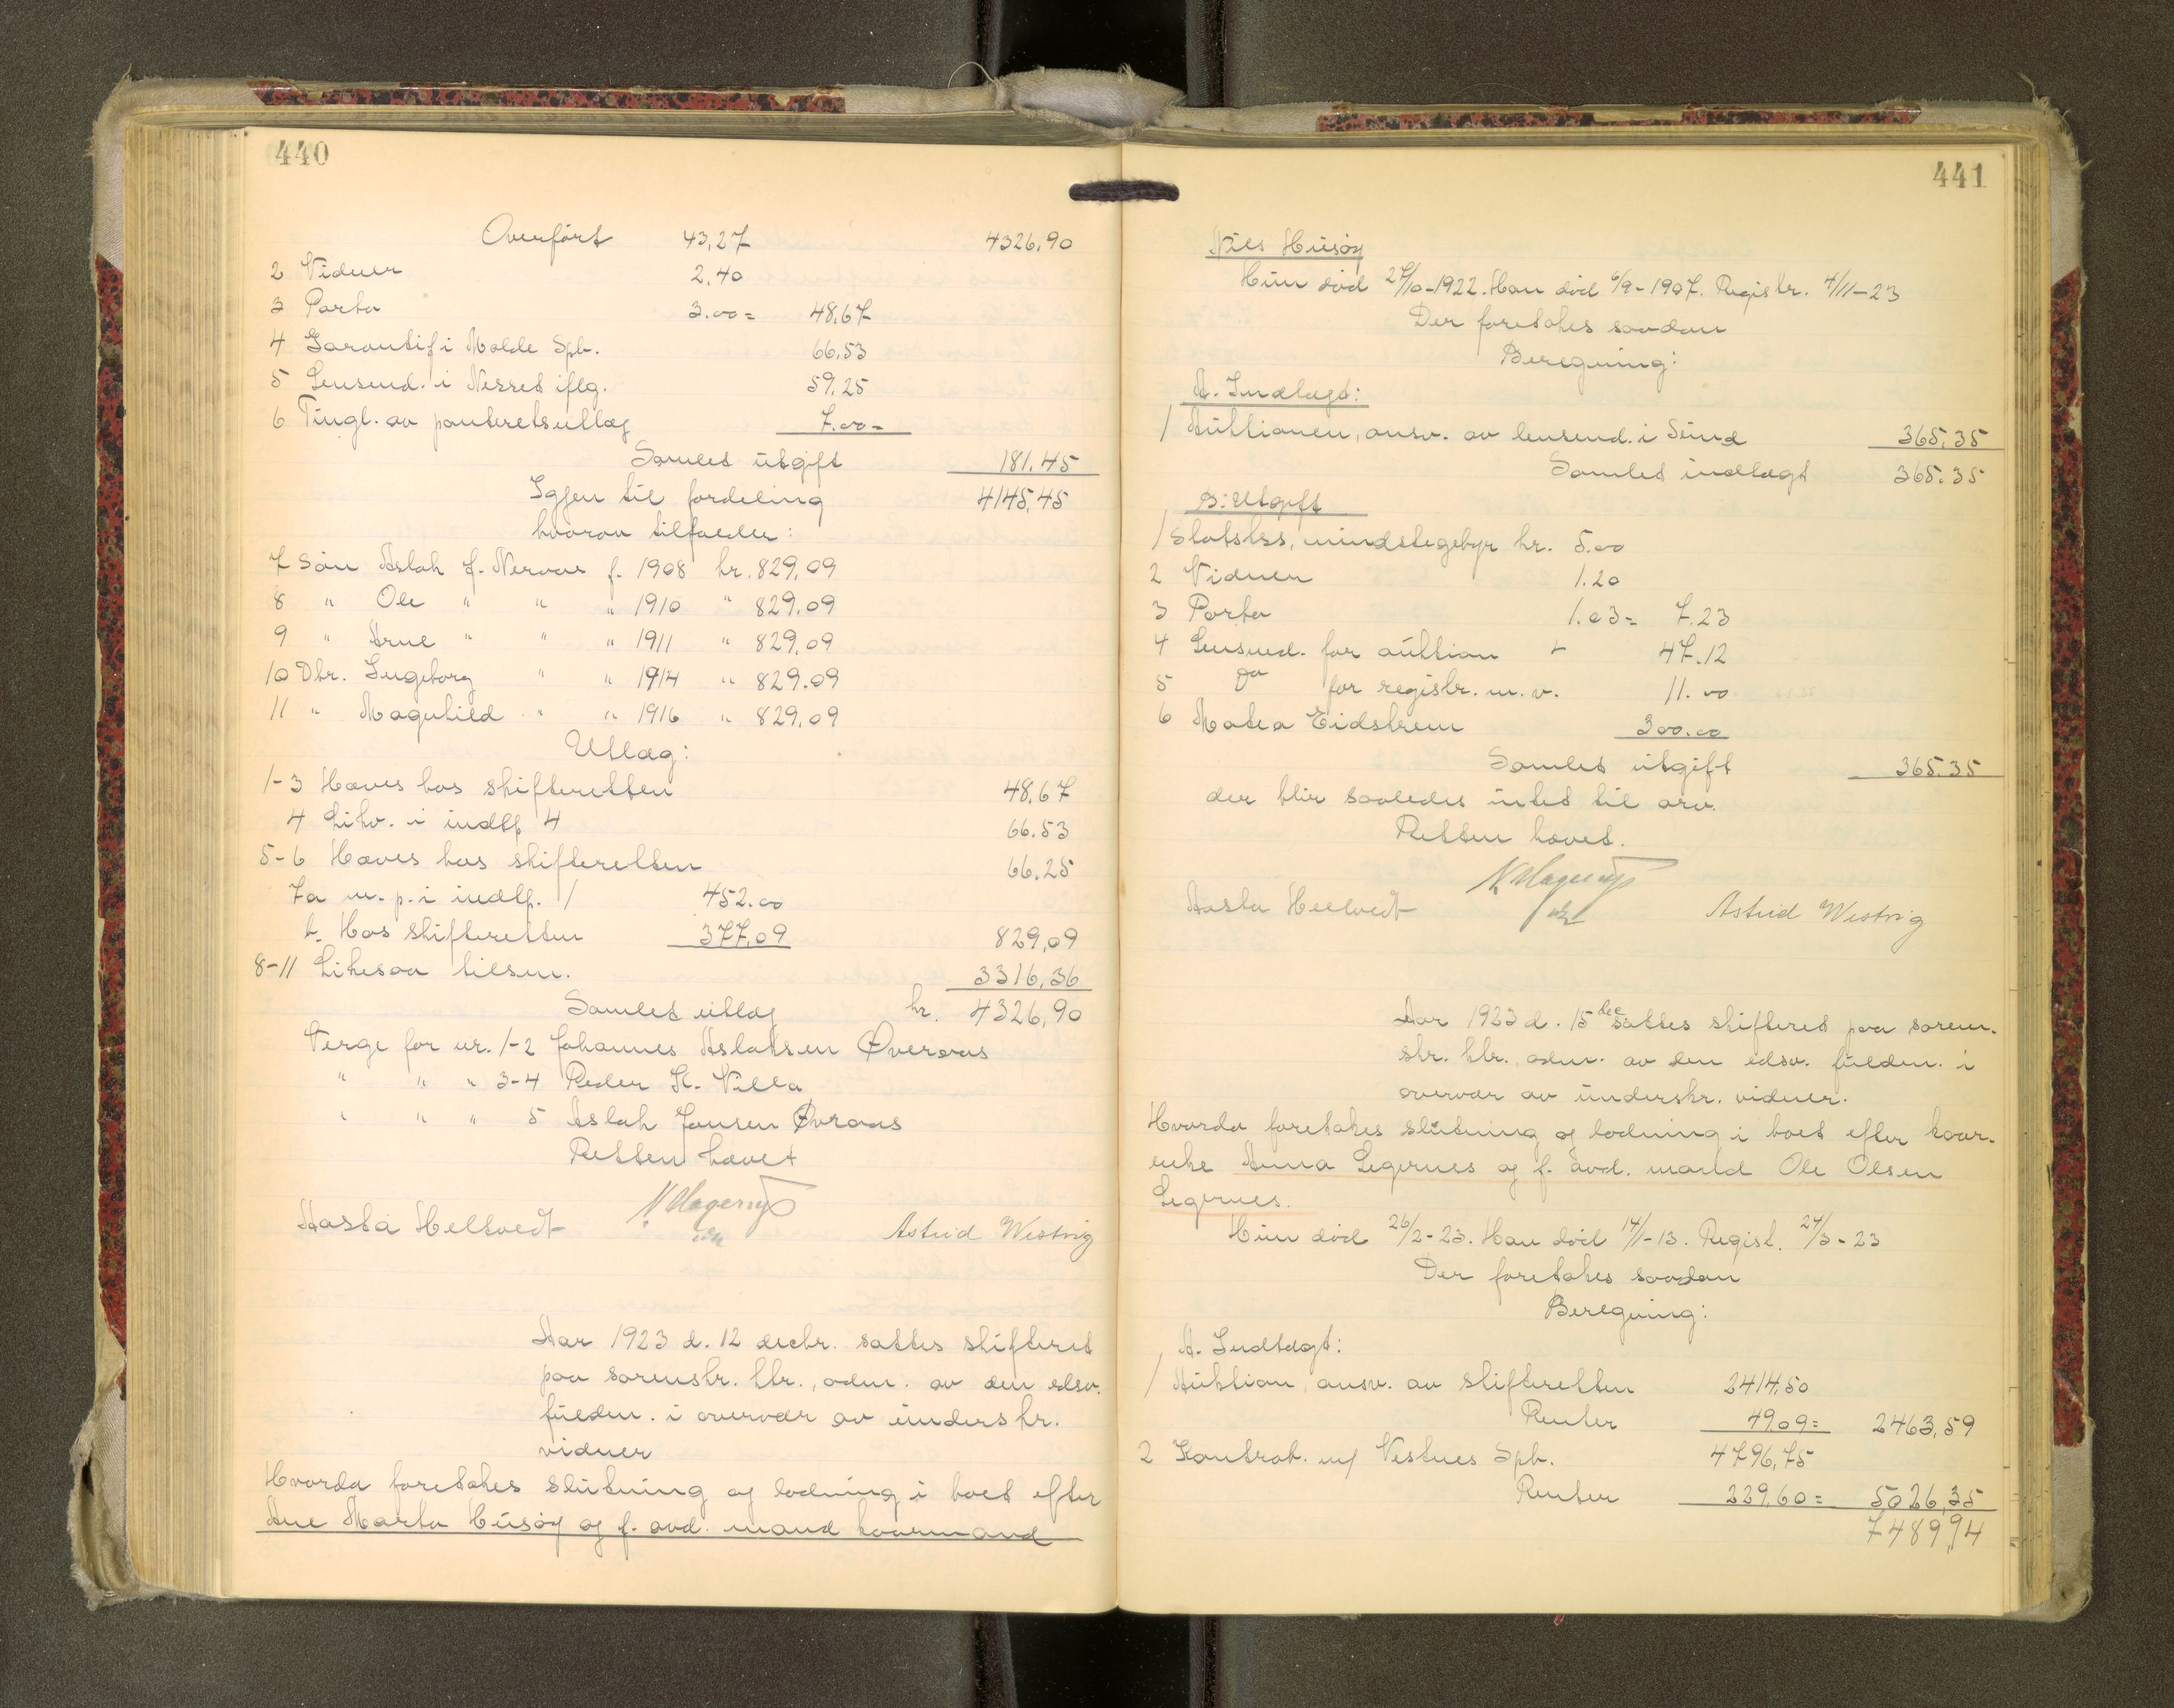 440
Overført 43,27 4326,90
2 Vidner 2,40
3 Porto 3.00 = 48,67
4 Garantif i Molde Spb. 66,53
5 Lensmd. i Nesset iflg. 59,25
6 Tingl. av panteretsutlæg 7.00 =
Samlet utgift 181.45
Igjen til fordeling 4145,45
hvorav tilfalder:
7 Søn Aslak J. Neraas f. 1908 kr. 829,09
8 " Ole " " " 1910 " 829.09
9 " Arne " " " 1911 " 829,09
10 Dtr. Ingeborg " " 1914 " 829.09
11 " Magnhild " " 1916 " 829,09
Utlæg:
1-3 Haves hos skifteretten 48,67
4 Likv. i indtp 4 66.53
5-6 Haves hos skifteretten 66,25
7a m. p. i indtp. 1 452.00
b. Hos skifteretten 377,09 829,09
8-11 Likesaa tilsm. 3316,36
Samlet utlæg kr. 4326,90
Verge for nr. 1-2 Johannes Aslaksen Øveraas
" " " 3-4 Peder K. Villa
" " " 5 Aslak Jonsen Øvraas
Retten hævet
N Hagerup
Aasta Heltvedt Astrid Westvig
Aar 1923 d. 12 decbr. sattes skifteret
paa sorenskr. ktr., adm. av den edsv.
fuldm. i overvær av underskr.
vidner
Hvorda foretokes slutning og lodning i boet efter
Ane Marta Husøy og f. avd. mand kaarmand
441
Nils Husøy
Hun død 27/10-1922. Han død 6/9-1907. Registr. 4/11-23
Der foretokes saadan
Beregning:
A. Indtægt:
1 Auktionen, ansv. av lensmd. i Sund 365,35
Samlet indtægt 365.35
B: Utgift
1 Statskss, mindstegebyr kr. 5.00
2 Vidner 1.20
3 Porto 1.03 = 7.23
4 Lensmd. for auktion 47.12
5 Do for registr. m. v. 11.00
6 Matea Eidskrem 300.00
Samlet utgift 365.35
der blir saaledes intet til arv.
Retten hævet.
N Hagerup
Aasta Heltvedt Astrid Westvig
Aar 1923 d. 15 dec sattes skifteret paa soren-
skr. ktr. adm. av den edsv. fuldm. i
overvær av underskr. vidner.
Hvorda foretokes slutning og lodning i boet efter kaar-
enke Anna Legernes og f. avd. mand Ole Olsen
Legernes.
Hun død 26/2-23. Han død 14/1-13. Regist. 24/3-23
Der foretokes saadan
Beregning:
A. Indtægt:
1 Auktion, ansv. av skifteretten 2414,50
Renter 49,09 = 2463,59
2 Kontrab. m/ Vestnes Spb. 4796,75
Renter 229,60 = 5026,35
7489,94